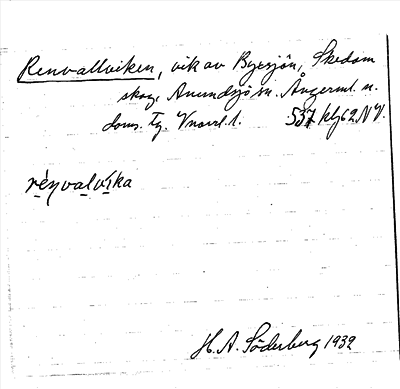 Renvallviken, vik av Byesjön, Skedom
skog, Anundsjö sn. Ångerml. n.
doms. Tg. 537 klj62NV.
rénvalvíka
H. A. Söderberg 1939